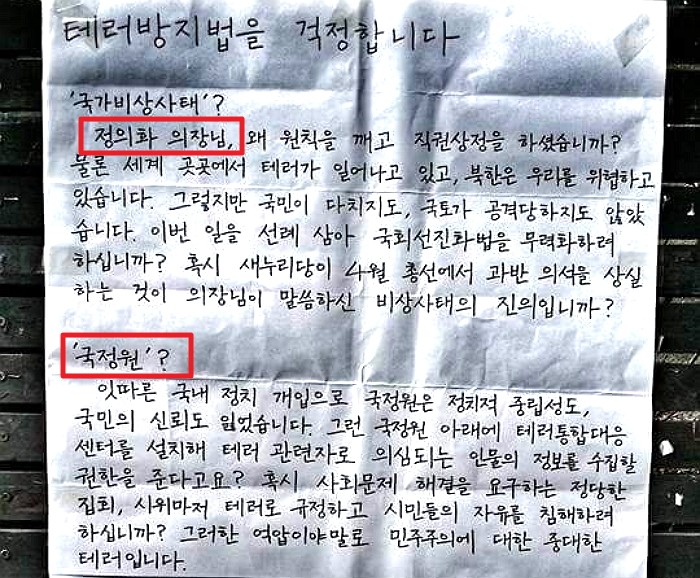 테러방지법을 걱정합니다
'국가비상사태'?
정의화 의장님, 왜 원칙을 깨고 직권상정을 하셨습니까?
물론 세계 곳곳에서 테러가 일어나고 있고, 북한은 우리를 위협하고
있습니다. 그렇지만 국민이 다치지도, 국토가 공격당하지도 않았
습니다. 이번 일을 선례 삼아 국회선진화법을 무력화하려
하십니까? 혹시 새누리당이 4월 총선에서 과반 의석을 상실
하는 것이 의장님이 말씀하신 비상사태의 진의입니까?
'국정원'?
잇따른 국내 정치 개입으로 국정원은 정치적 중립성도,
국민의 신뢰도 잃었습니다. 그런 국정원 아래에 테러통합대응
센터를 설치해 테러 관련자로 의심되는 인물의 정보를 수집할
권한을 준다고요? 혹시 사회문제 해결을 요구하는 정당한
집회, 시위마저 테러로 규정하고 시민들의 자유를 침해하려
하십니까? 그러한 억압이야말로 민주주의에 대한 중대한
테러입니다.